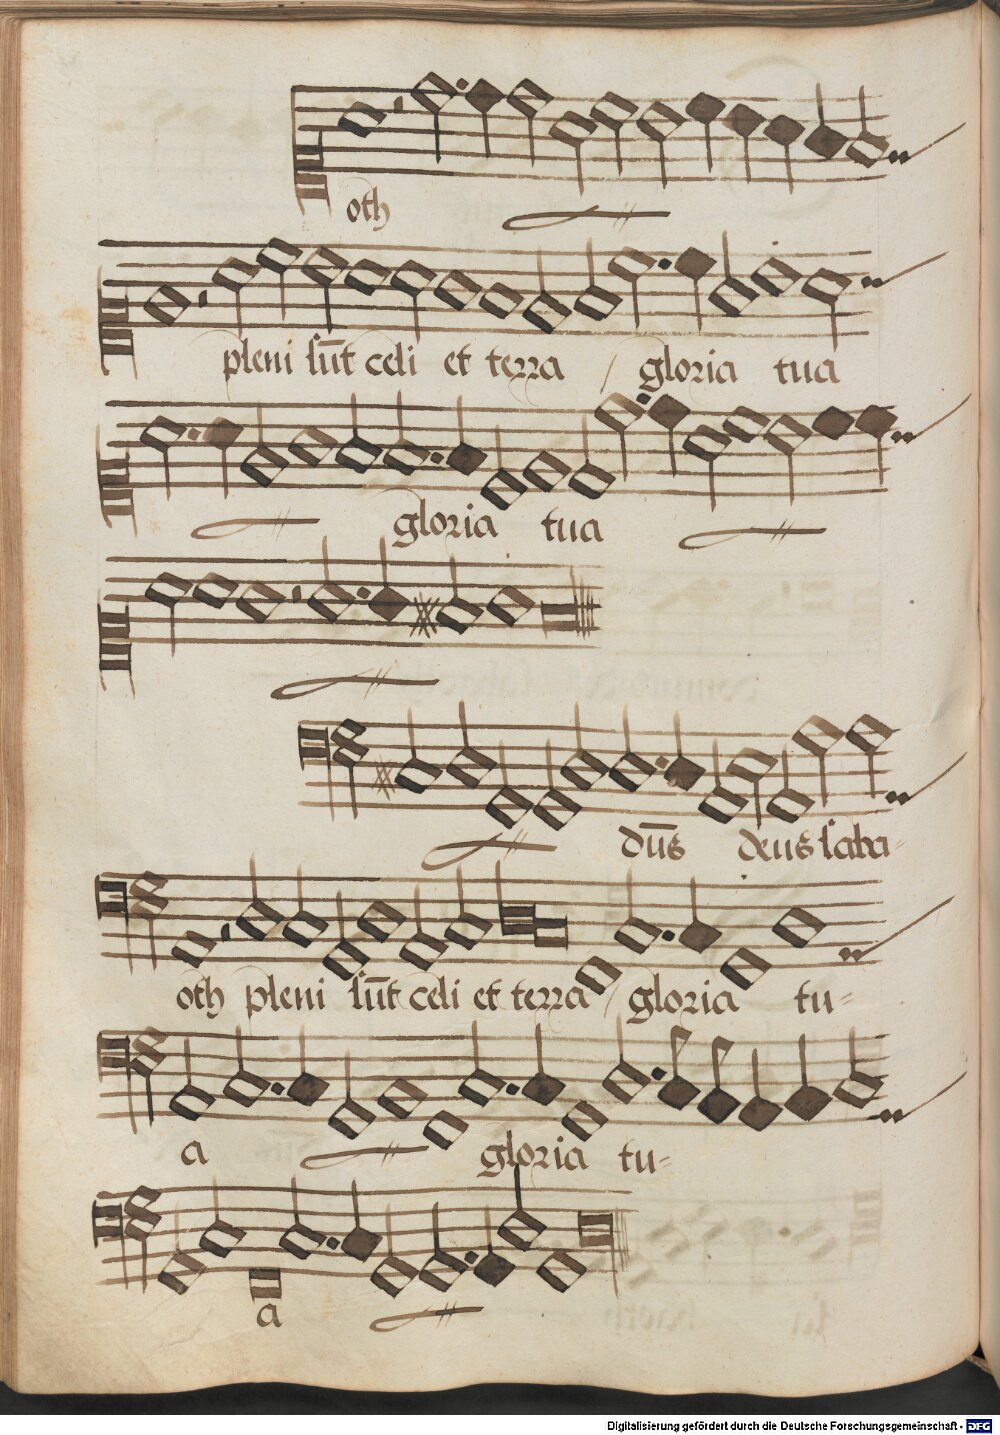 oth
pleni sūt celi et terra / gloria tua
gloria tua
dūs deus saba-
oth pleni sūt celi et terra / gloria tu=
a gloria tu=
a
Digitalisierung gefördert durch die Deutsche Forschungsgemeinschaft - DFG